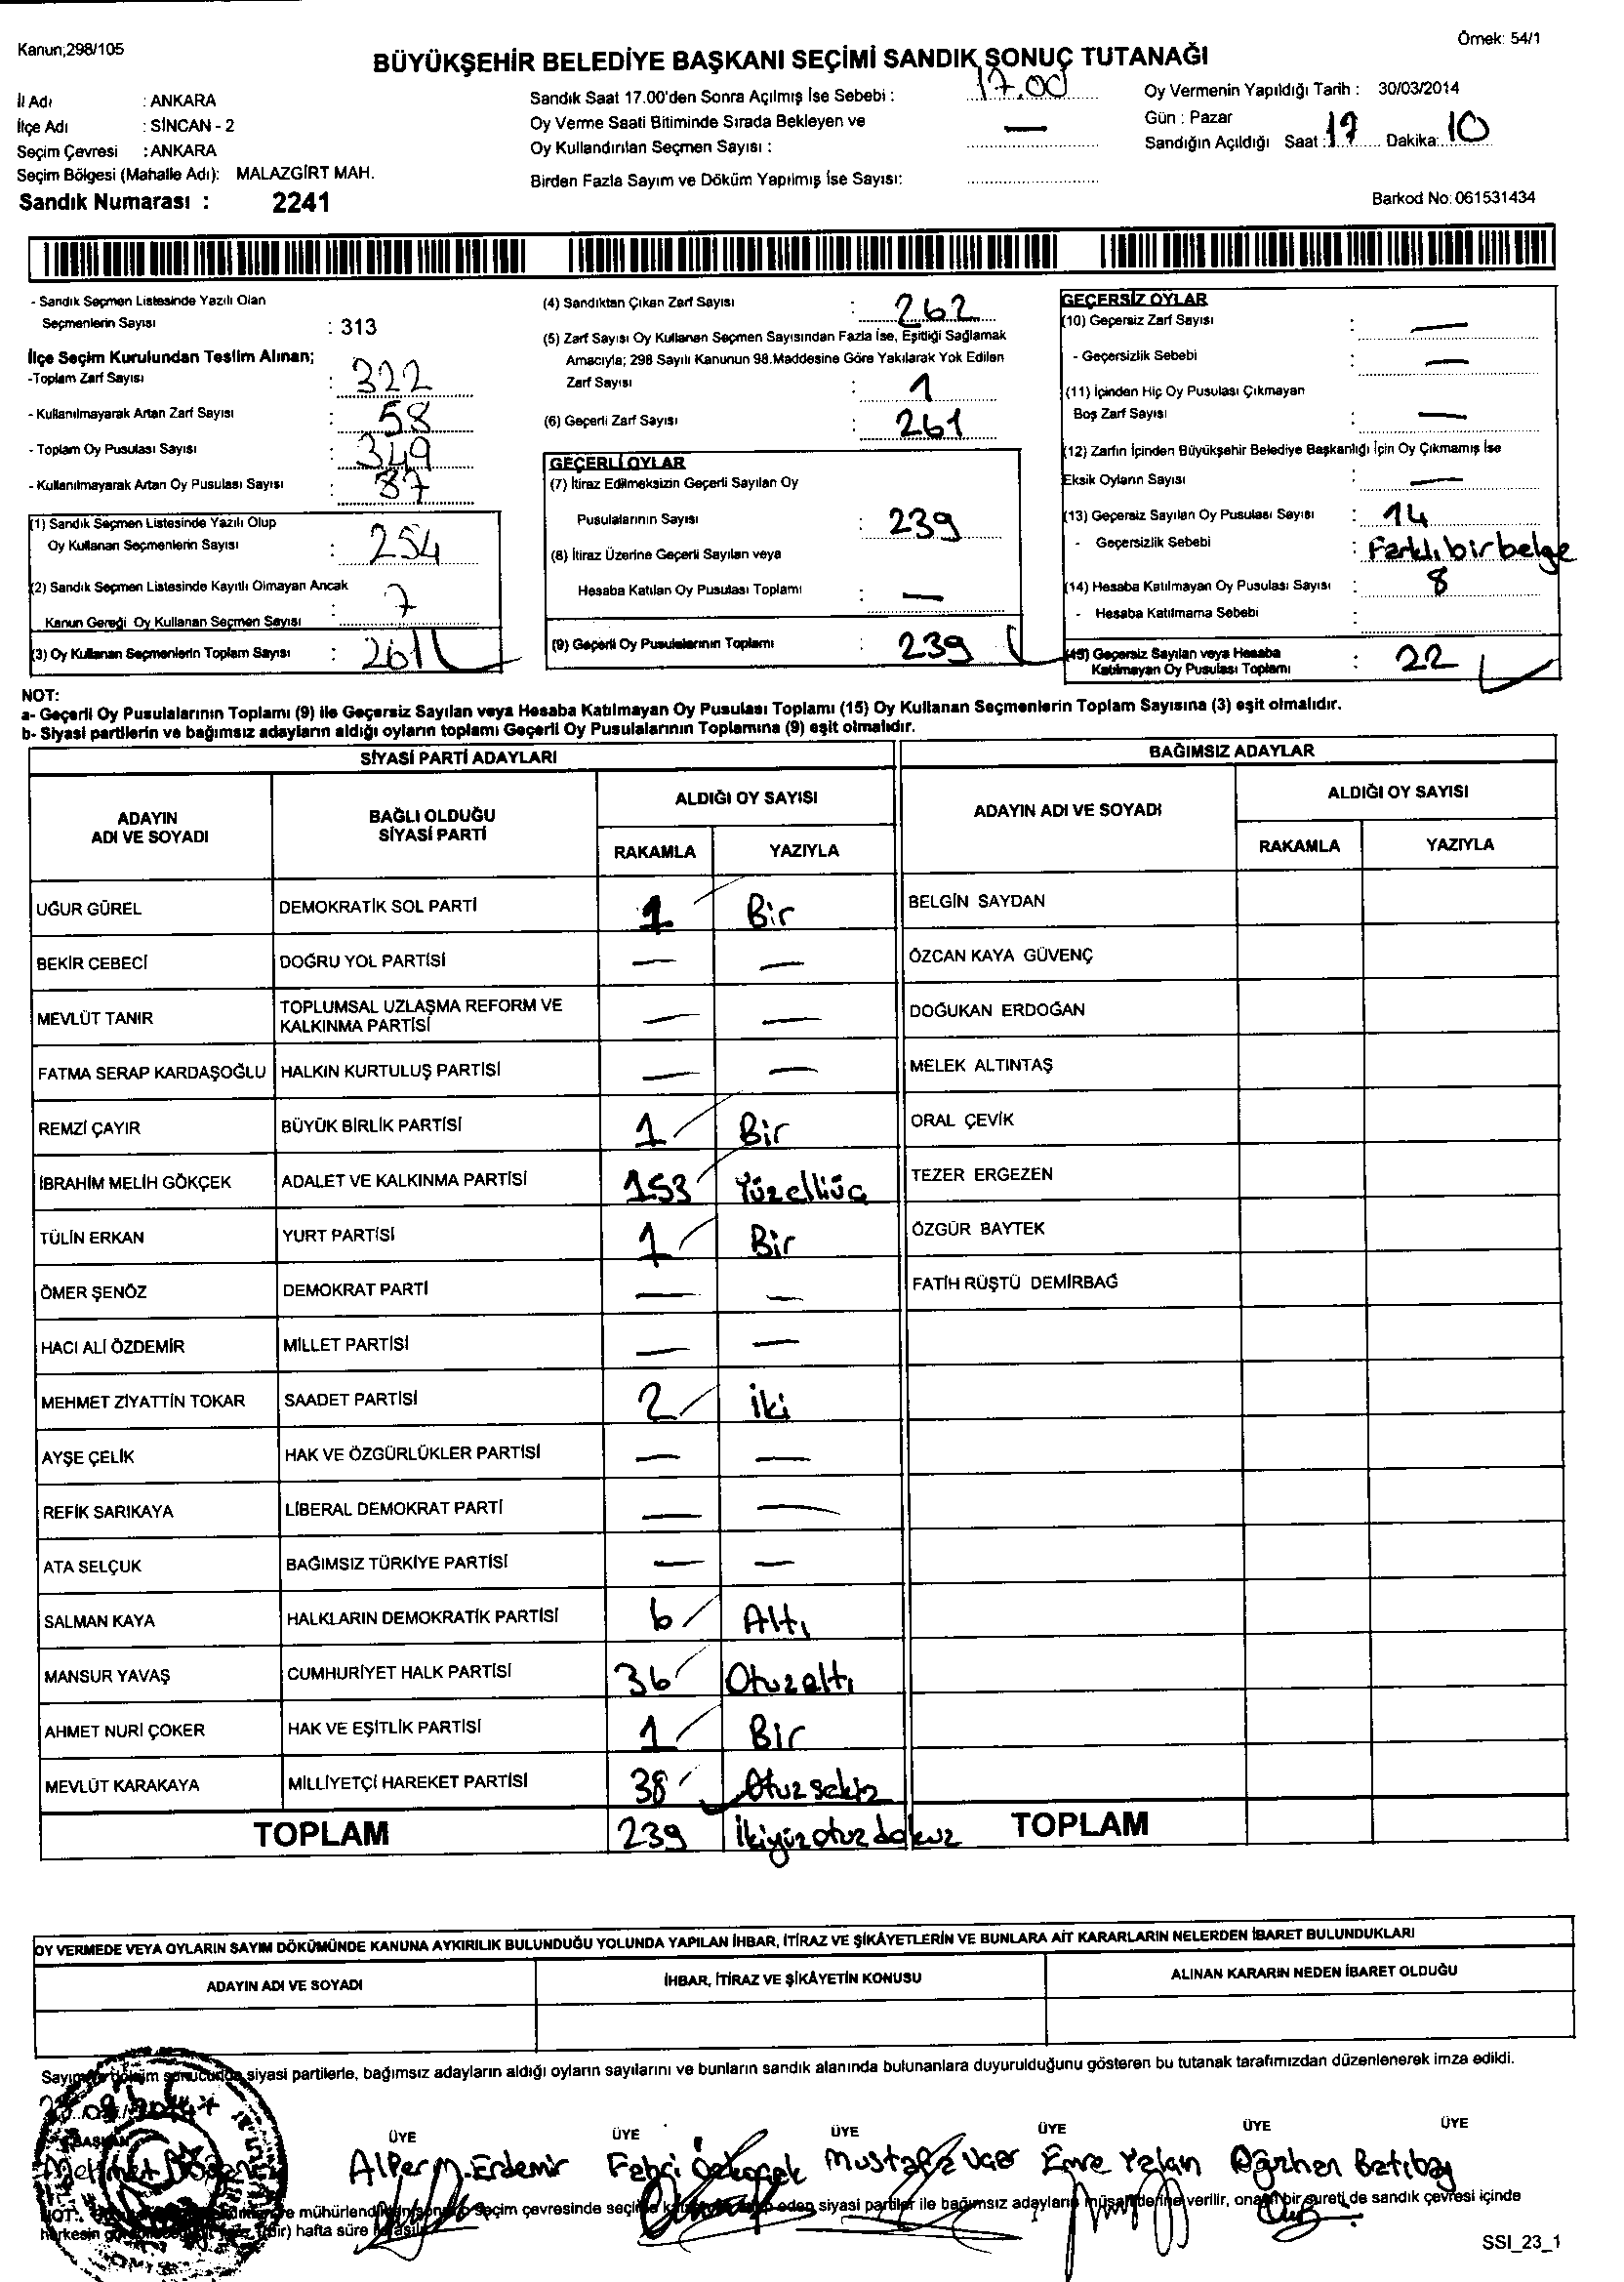 Kanun;298/105
Örnek: 54/1
BÜYÜKŞEHİR BELEDİYE BAŞKANI SEÇİMİ SANDIK SONUÇ TUTANAĞI
İl Adı : ANKARA
İlçe Adı : SİNCAN - 2
Seçim Çevresi : ANKARA
Seçim Bölgesi (Mahalle Adı): MALAZGİRT MAH.
Sandık Numarası : 2241
Sandık Saat 17.00'den Sonra Açılmış İse Sebebi : 17.00
Oy Verme Saati Bitiminde Sırada Bekleyen ve
Oy Kullandırılan Seçmen Sayısı : —
Birden Fazla Sayım ve Döküm Yapılmış İse Sayısı:
Oy Vermenin Yapıldığı Tarih : 30/03/2014
Gün : Pazar
Sandığın Açıldığı Saat : 17 Dakika: 10
Barkod No: 061531434
- Sandık Seçmen Listesinde Yazılı Olan
Seçmenlerin Sayısı : 313
İlçe Seçim Kurulundan Teslim Alınan;
-Toplam Zarf Sayısı : 322
- Kullanılmayarak Artan Zarf Sayısı : 58
- Toplam Oy Pusulası Sayısı : 349
- Kullanılmayarak Artan Oy Pusulası Sayısı : 87
(1) Sandık Seçmen Listesinde Yazılı Olup
Oy Kullanan Seçmenlerin Sayısı : 254
(2) Sandık Seçmen Listesinde Kayıtlı Olmayan Ancak
Kanun Gereği Oy Kullanan Seçmen Sayısı : 7
(3) Oy Kullanan Seçmenlerin Toplam Sayısı : 261
(4) Sandıktan Çıkan Zarf Sayısı : 262
(5) Zarf Sayısı Oy Kullanan Seçmen Sayısından Fazla İse, Eşitliği Sağlamak
Amacıyla; 298 Sayılı Kanunun 98.Maddesine Göre Yakılarak Yok Edilen
Zarf Sayısı : 1
(6) Geçerli Zarf Sayısı : 261
GEÇERLİ OYLAR
(7) İtiraz Edilmeksizin Geçerli Sayılan Oy
Pusulalarının Sayısı : 239
(8) İtiraz Üzerine Geçerli Sayılan veya
Hesaba Katılan Oy Pusulası Toplamı : —
(9) Geçerli Oy Pusulalarının Toplamı : 239
GEÇERSİZ OYLAR
(10) Geçersiz Zarf Sayısı : —
- Geçersizlik Sebebi : —
(11) İçinden Hiç Oy Pusulası Çıkmayan
Boş Zarf Sayısı : —
(12) Zarfın İçinden Büyükşehir Belediye Başkanlığı İçin Oy Çıkmamış İse
Eksik Oyların Sayısı : —
(13) Geçersiz Sayılan Oy Pusulası Sayısı : 14
- Geçersizlik Sebebi : Farklı bir belge
(14) Hesaba Katılmayan Oy Pusulası Sayısı : 8
- Hesaba Katılmama Sebebi :
(15) Geçersiz Sayılan veya Hesaba
Katılmayan Oy Pusulası Toplamı : 22
NOT:
a- Geçerli Oy Pusulalarının Toplamı (9) ile Geçersiz Sayılan veya Hesaba Katılmayan Oy Pusulası Toplamı (15) Oy Kullanan Seçmenlerin Toplam Sayısına (3) eşit olmalıdır.
b- Siyasi partilerin ve bağımsız adayların aldığı oyların toplamı Geçerli Oy Pusulalarının Toplamına (9) eşit olmalıdır.
SİYASİ PARTİ ADAYLARI
BAĞIMSIZ ADAYLAR
ADAYIN ADI VE SOYADI
BAĞLI OLDUĞU SİYASİ PARTİ
ALDIĞI OY SAYISI
RAKAMLA YAZIYLA
ADAYIN ADI VE SOYADI
ALDIĞI OY SAYISI
RAKAMLA YAZIYLA
UĞUR GÜREL DEMOKRATİK SOL PARTİ 1 Bir BELGİN SAYDAN
BEKİR CEBECİ DOĞRU YOL PARTİSİ — — ÖZCAN KAYA GÜVENÇ
MEVLÜT TANIR TOPLUMSAL UZLAŞMA REFORM VE KALKINMA PARTİSİ — — DOĞUKAN ERDOĞAN
FATMA SERAP KARDAŞOĞLU HALKIN KURTULUŞ PARTİSİ — — MELEK ALTINTAŞ
REMZİ ÇAYIR BÜYÜK BİRLİK PARTİSİ 1 Bir ORAL ÇEVİK
İBRAHİM MELİH GÖKÇEK ADALET VE KALKINMA PARTİSİ 153 Yüzelliüç TEZER ERGEZEN
TÜLİN ERKAN YURT PARTİSİ 1 Bir ÖZGÜR BAYTEK
ÖMER ŞENÖZ DEMOKRAT PARTİ — — FATİH RÜŞTÜ DEMİRBAĞ
HACI ALİ ÖZDEMİR MİLLET PARTİSİ — —
MEHMET ZİYATTİN TOKAR SAADET PARTİSİ 2 İki
AYŞE ÇELİK HAK VE ÖZGÜRLÜKLER PARTİSİ — —
REFİK SARIKAYA LİBERAL DEMOKRAT PARTİ — —
ATA SELÇUK BAĞIMSIZ TÜRKİYE PARTİSİ — —
SALMAN KAYA HALKLARIN DEMOKRATİK PARTİSİ 6 Altı
MANSUR YAVAŞ CUMHURİYET HALK PARTİSİ 36 Otuzaltı
AHMET NURİ ÇOKER HAK VE EŞİTLİK PARTİSİ 1 Bir
MEVLÜT KARAKAYA MİLLİYETÇİ HAREKET PARTİSİ 38 Otuzsekiz
TOPLAM 239 İkiyüzotuzdokuz TOPLAM
OY VERMEDE VEYA OYLARIN SAYIM DÖKÜMÜNDE KANUNA AYKIRILIK BULUNDUĞU YOLUNDA YAPILAN İHBAR, İTİRAZ VE ŞİKÂYETLERİN VE BUNLARA AİT KARARLARIN NELERDEN İBARET BULUNDUKLARI
ADAYIN ADI VE SOYADI İHBAR, İTİRAZ VE ŞİKÂYETİN KONUSU ALINAN KARARIN NEDEN İBARET OLDUĞU
siyasi partilerle, bağımsız adayların aldığı oyların sayılarını ve bunların sandık alanında bulunanlara duyurulduğunu gösteren bu tutanak tarafımızdan düzenlenerek imza edildi.
BAŞKAN ÜYE ÜYE ÜYE ÜYE ÜYE ÜYE
Mehmet Alper M. Erdemir Fehmi Mustafa Emre Yalan Oğuzhan Batıbay
seçim çevresinde eden siyasi partiler ile bağımsız adayların verilir, bir sureti de sandık çevresi içinde
hafta süre
SSI_23_1